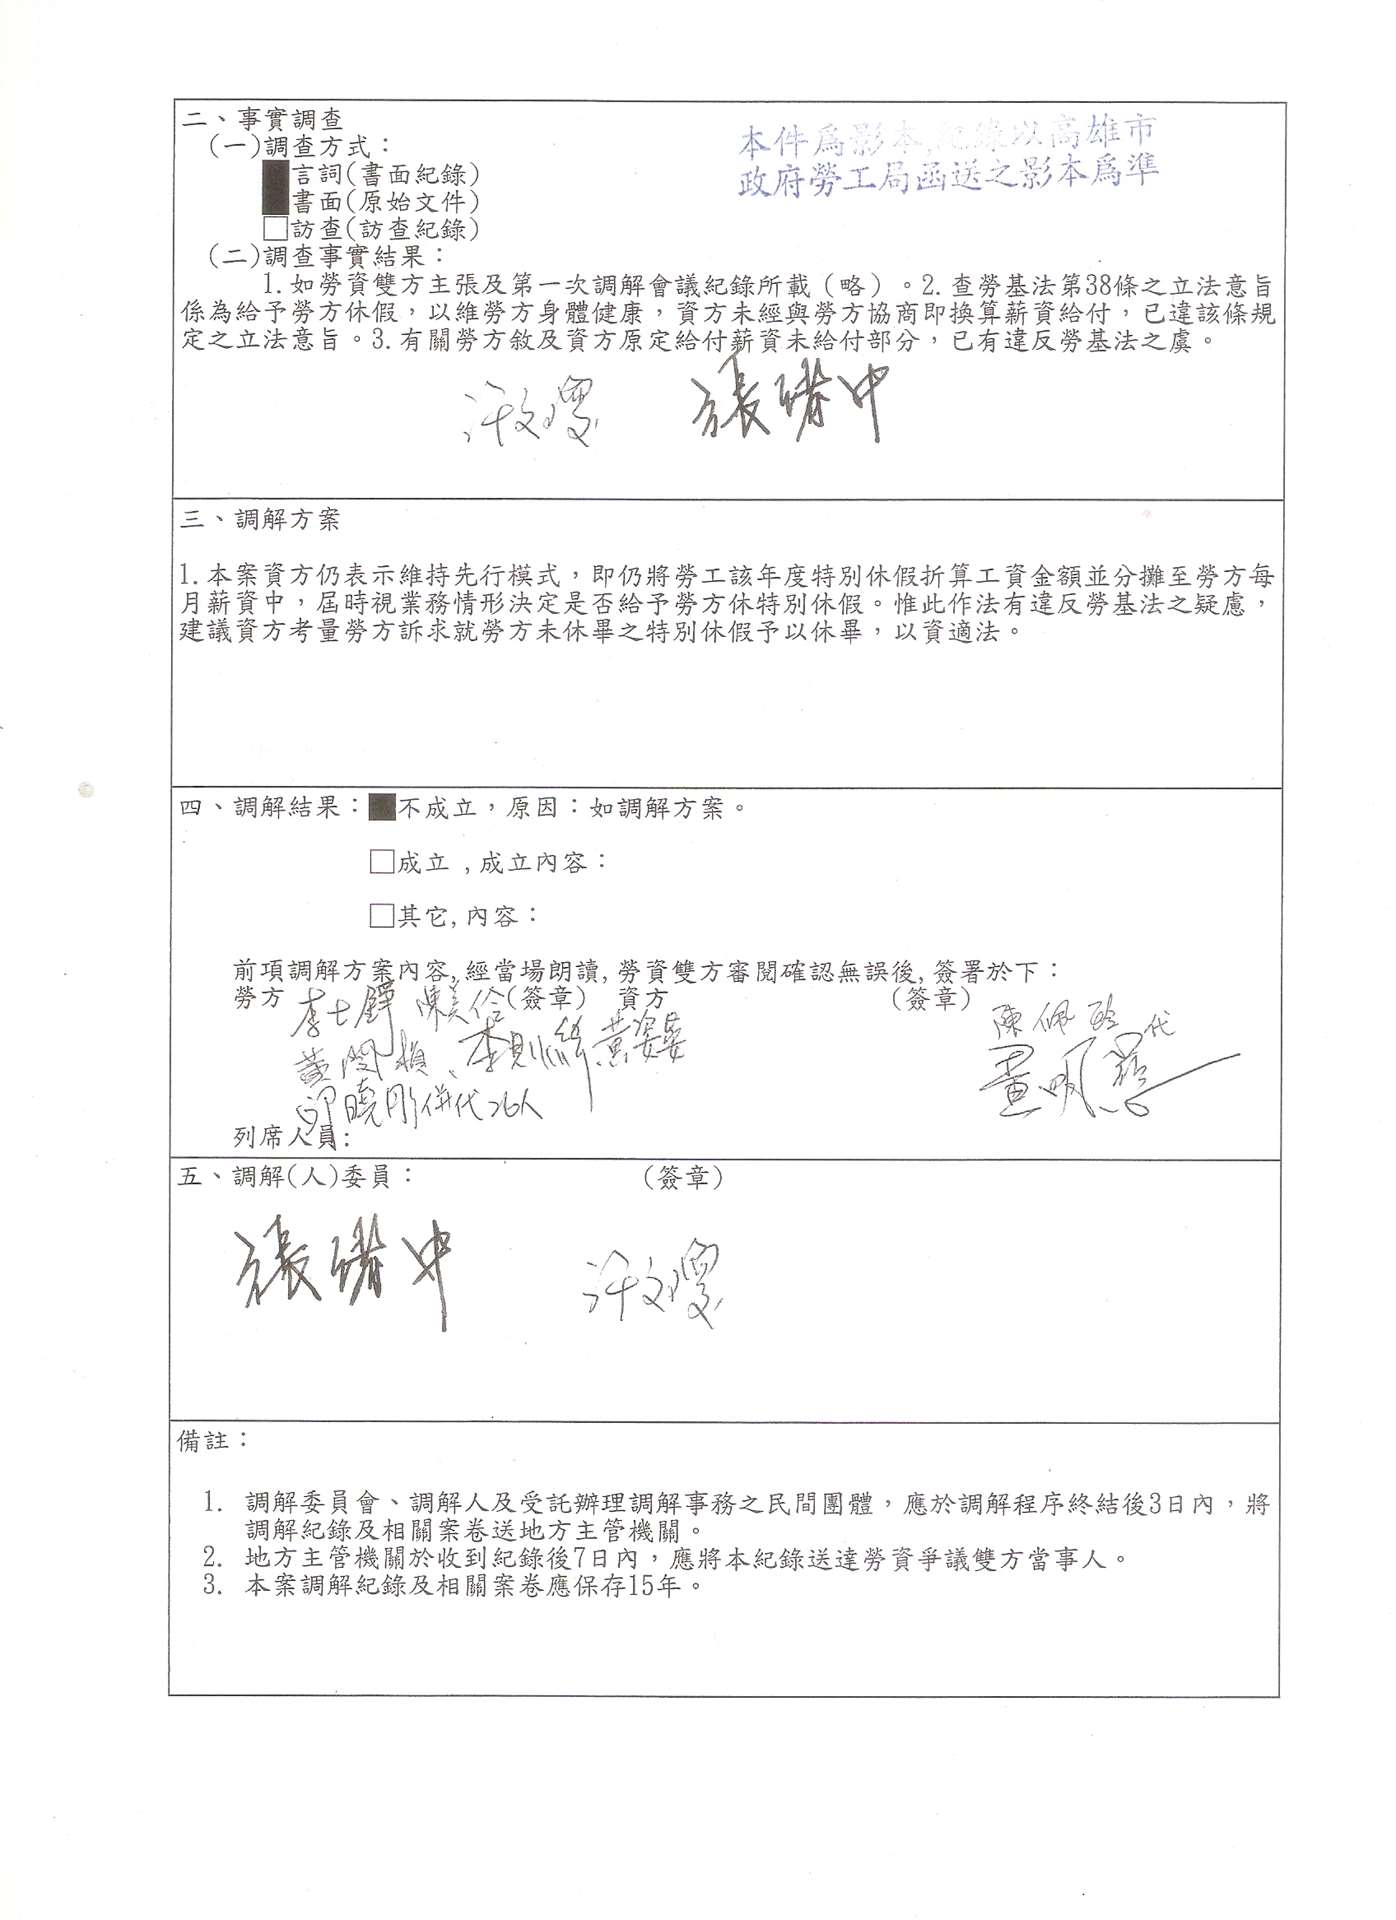 二、事實調查
本件為影本,紀錄以高雄市
政府勞工局函送之影本為準
(一)調查方式：
■言詞(書面紀錄)
■書面(原始文件)
□訪查(訪查紀錄)
(二)調查事實結果：
1.如勞資雙方主張及第一次調解會議紀錄所載（略）。2.查勞基法第38條之立法意旨
係為給予勞方休假，以維勞方身體健康，資方未經與勞方協商即換算薪資給付，已違該條規
定之立法意旨。3.有關勞方敘及資方原定給付薪資未給付部分，已有違反勞基法之虞。
三、調解方案
1.本案資方仍表示維持先行模式，即仍將勞工該年度特別休假折算工資金額並分攤至勞方每
月薪資中，屆時視業務情形決定是否給予勞方休特別休假。惟此作法有違反勞基法之疑慮，
建議資方考量勞方訴求就勞方未休畢之特別休假予以休畢，以資適法。
四、調解結果：■不成立，原因：如調解方案。
□成立,成立內容：
□其它,內容：
前項調解方案內容,經當場朗讀,勞資雙方審閱確認無誤後,簽署於下：
勞方 李士鐸 (簽章) 資方 (簽章) 陳佩
代
併代26人
列席人員:
五、調解(人)委員： (簽章)
備註：
1. 調解委員會、調解人及受託辦理調解事務之民間團體，應於調解程序終結後3日內，將
調解紀錄及相關案卷送地方主管機關。
2. 地方主管機關於收到紀錄後7日內，應將本紀錄送達勞資爭議雙方當事人。
3. 本案調解紀錄及相關案卷應保存15年。